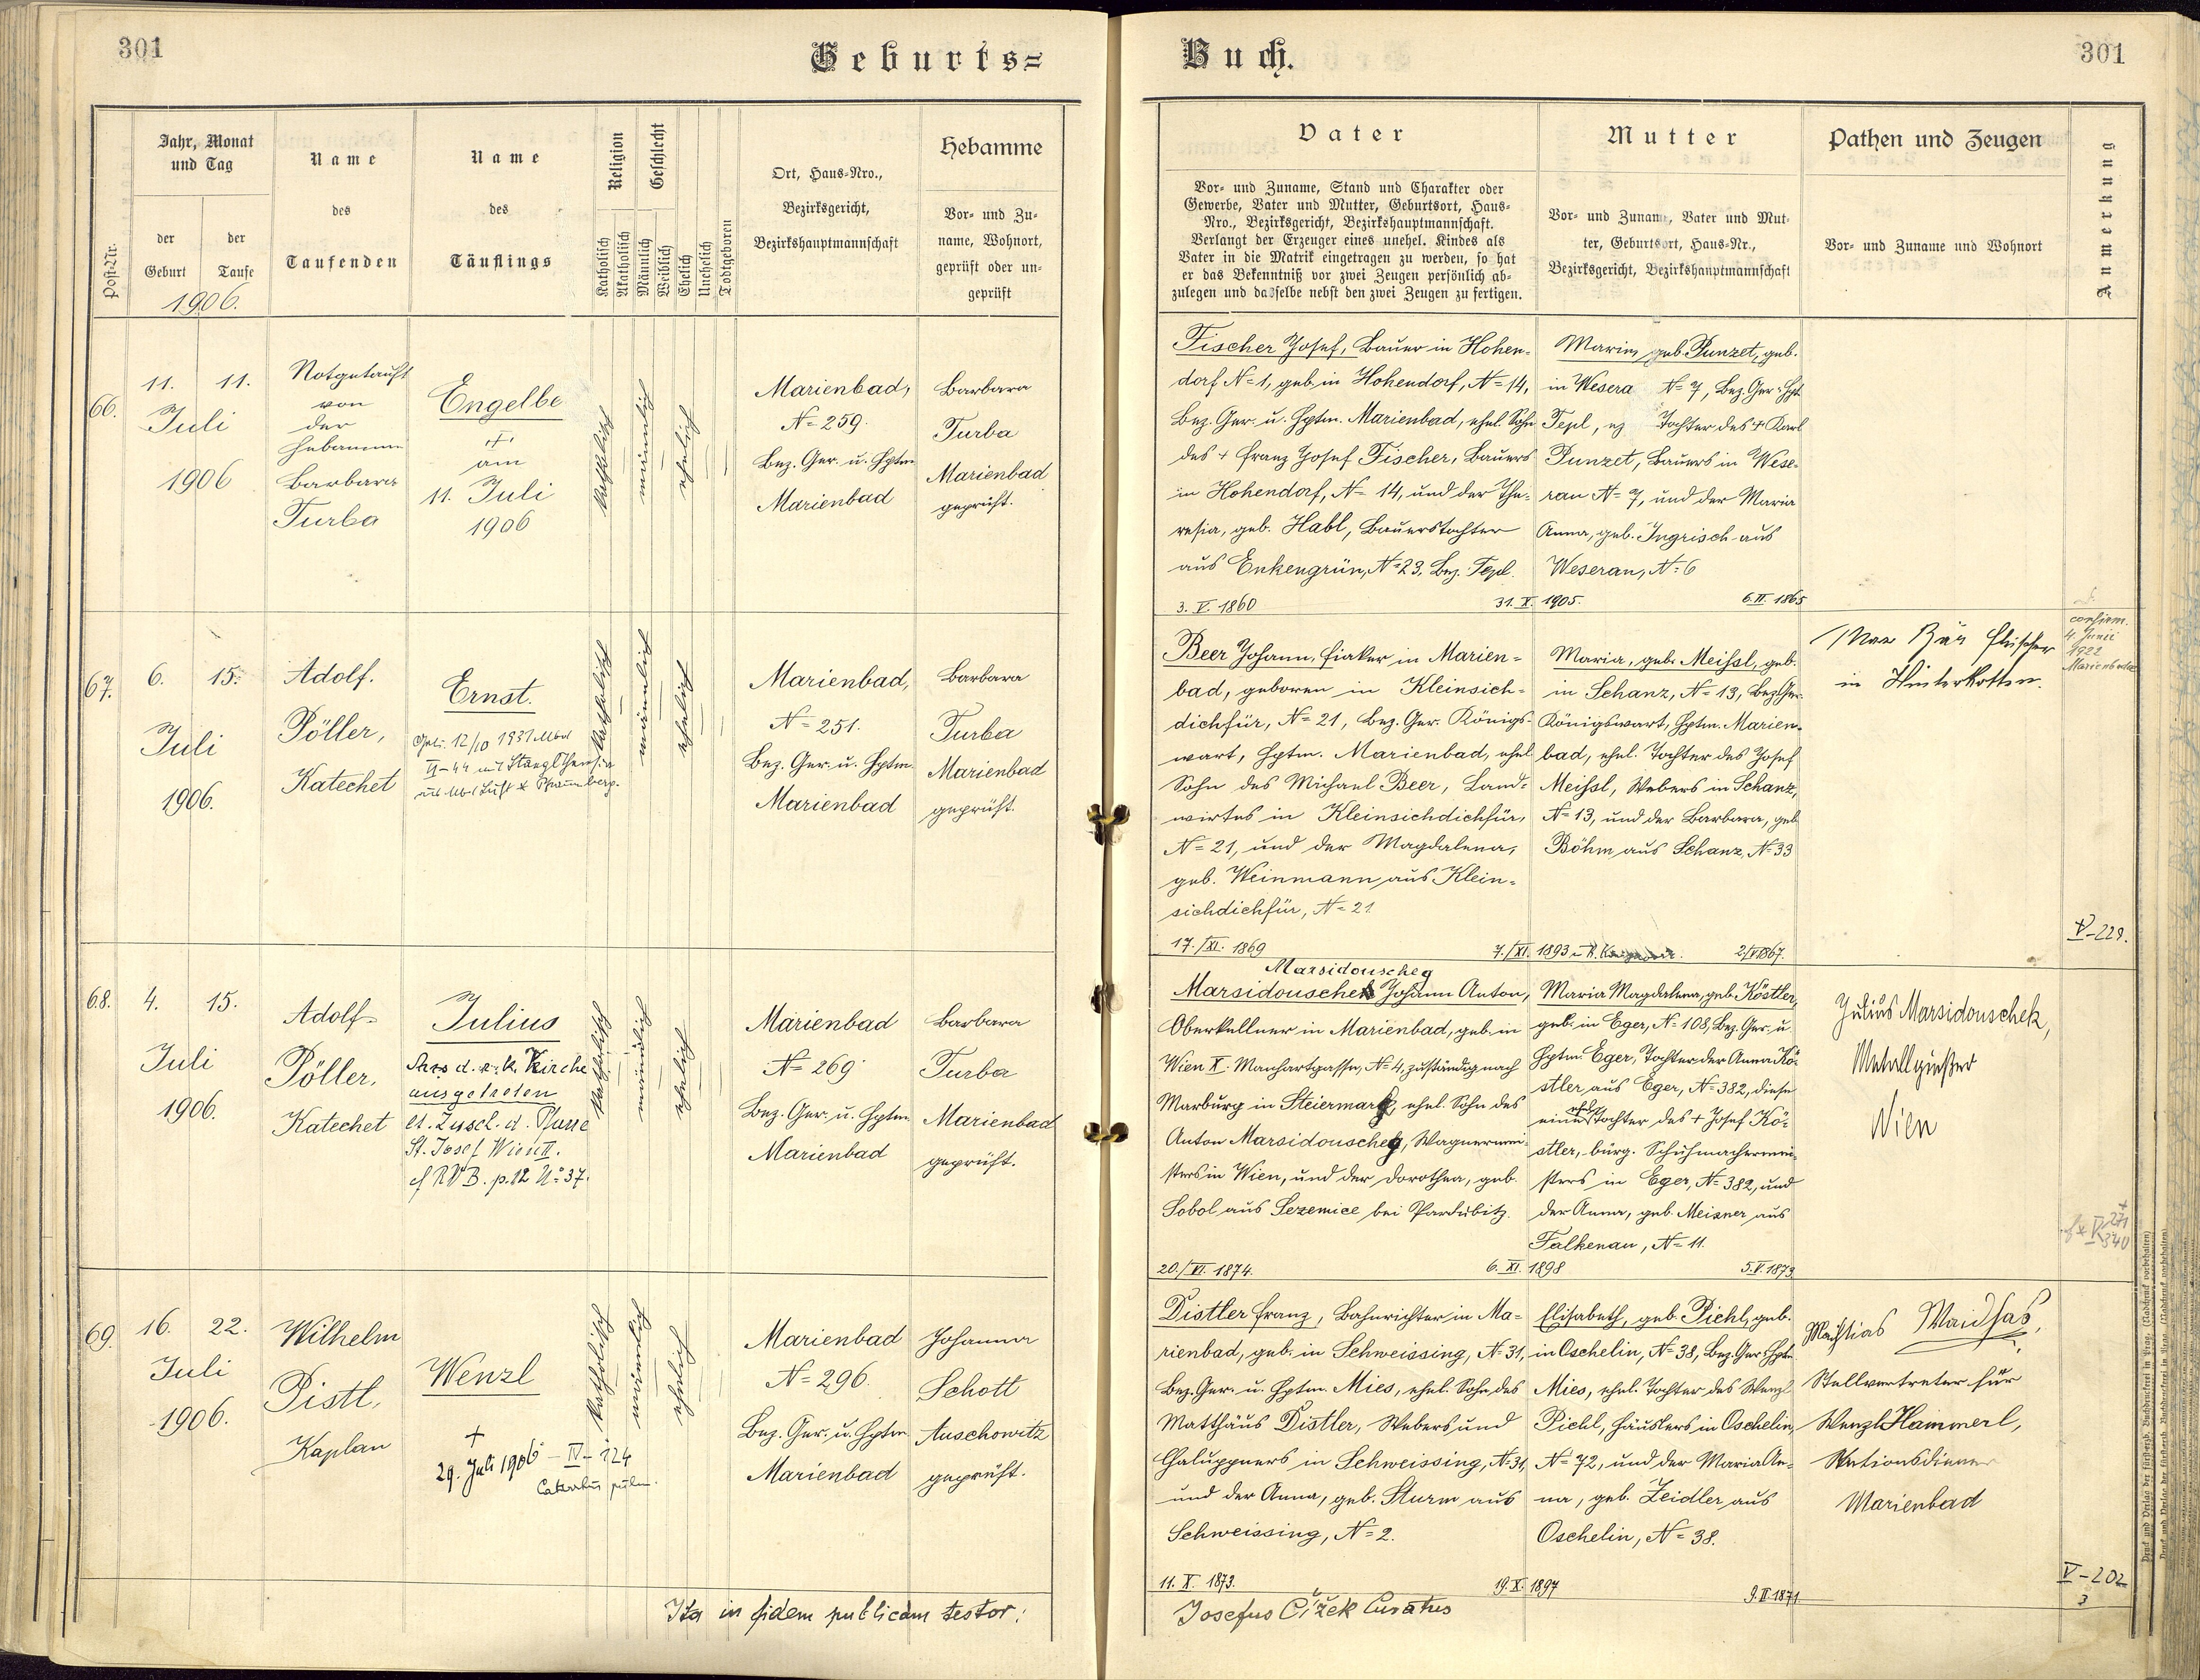 301
Geburts=
Buch.
301
Post-Nr.
Jahr, Monat
und Tag
der
Geburt
der
Taufe
1906.
Name
des
Taufenden
Name
des
Täuflings
Religion
Katholisch
Akatholisch
Geschlecht
Männlich
Weiblich
Ehelich
Unehelich
Todtgeboren
Ort, Haus-Nro.,
Bezirksgericht,
Bezirkshauptmannschaft
Hebamme
Vor- und Zu-
name, Wohnort,
geprüft oder un-
geprüft
Vater
Vor- und Zuname, Stand und Charakter oder
Gewerbe, Vater und Mutter, Geburtsort, Haus-
Nro., Bezirksgericht, Bezirkshauptmannschaft.
Verlangt der Erzeuger eines unehel. Kindes als
Vater in die Matrik eingetragen zu werden, so hat
er das Bekenntniß vor zwei Zeugen persönlich ab-
zulegen und dasselbe nebst den zwei Zeugen zu fertigen.
Mutter
Vor- und Zuname, Vater und Mut-
ter, Geburtsort, Haus-Nr.,
Bezirksgericht, Bezirkshauptmannschaft
Pathen und Zeugen
Vor- und Zuname und Wohnort
Anmerkung
66.
11. 11.
Juli
1906
Notgetauft
von
der
Hebamme
Barbara
Turba
Engelbe
+
am
11. Juli
1906
katholisch
männlich
ehelich
Marienbad,
N= 259.
Bez. Ger. u. Hptm.
Marienbad
Barbara
Turba
Marienbad
geprüft.
Fischer Josef, Bauer in Hohen-
dorf N=1, geb. in Hohendorf, N= 14,
Bez. Ger. u. Hptm. Marienbad, ehel. Sohn
des + Franz Josef Fischer, Bauers
in Hohendorf, N= 14, und der The-
resia, geb. Habl, Bauerstochter
aus Enkengrün, N= 23, Bez. Tepl.
3. V. 1860
31. X. 1905.
Maria, geb. Punzet, geb.
in Wesera N= 7, Bez. Ger. Hpt.
Tepl, Tochter des + Karl
Punzet, Bauers in Wese-
rau N= 7, und der Maria
Anna, geb. Ingrisch aus
Weserau, N= 6
6. II. 1865
67.
6. 15.
Juli
1906.
Adolf.
Pöller,
Katechet
Ernst.
12/10 1931
VI-44 mit Stangl
katholisch
männlich
ehelich
Marienbad,
N= 251.
Bez. Ger. u. Hptm.
Marienbad
Barbara
Turba
Marienbad
geprüft.
Beer Johann, Fiaker in Marien-
bad, geboren in Kleinsich-
dichfür, N= 21, Bez. Ger. Königs-
wart, Hptm. Marienbad, ehel.
Sohn des Michael Beer, Land-
wirtes in Kleinsichdichfür,
N= 21, und der Magdalena,
geb. Weinmann aus Klein-
sichdichfür, N= 21.
17./XI. 1869
7./XI. 1893
Maria, geb. Meißl, geb.
in Schanz, N= 13, Bez. Ger.
Königswart, Hptm. Marien-
bad, ehel. Tochter des Josef
Meißl, Webers in Schanz,
N= 13, und der Barbara, geb.
Böhm aus Schanz, N= 33
2/V 1867.
Max Bär Fleischer
in Hinterkotten.
confirm.
4. Junii
1922
Marienbad
V-229.
68.
4. 15.
Juli
1906.
Adolf
Pöller,
Katechet
Julius
Aus d. r. k. Kirche
ausgetreten
lt. Zusch. d. Pfarre
St. Josef Wien II.
cf RVB. p. 12 N: 37.
katholisch
männlich
ehelich
Marienbad
N= 269
Bez. Ger. u. Hptm.
Marienbad
Barbara
Turba
Marienbad
geprüft.
Marsidouscheg
Marsidouschek Johann Anton,
Oberkellner in Marienbad, geb. in
Wien X. Manhartgasse, N= 4, zuständig nach
Marburg in Steiermark, ehel. Sohn des
Anton Marsidouscheg, Wagnermei-
sters in Wien, und der Dorothea, geb.
Sobol aus Sezemice bei Pardubitz.
20./VI. 1874.
6. XI. 1898
Maria Magdalena, geb. Köstler,
geb. in Eger, N= 108, Bez. Ger. u.
Hptm. Eger, Tochter der Anna Kö-
stler aus Eger, N= 382, diese
eine ehel. Tochter des + Josef Kö-
stler, bürg. Schuhmachermei-
sters in Eger, N= 382, und
der Anna, geb. Meisner aus
Falkenau, N= 11.
5. V. 1873
Julius Marsidouschek,
Metallgießer
Wien
271
340
69.
16. 22.
Juli
1906.
Wilhelm
Pistl,
Kaplan
Wenzl
+
29. Juli 1906 - IV - 124
Catarrhus pulm.
katholisch
männlich
ehelich
Marienbad
N= 296.
Bez. Ger. u. Hptm.
Marienbad
Johanna
Schott
Auschowitz
geprüft.
Distler Franz, Bahnrichter in Ma-
rienbad, geb. in Schweissing, N= 31,
Bez. Ger. u. Hptm. Mies, ehel. Sohn des
Matthäus Distler, Webers und
Chaluppners in Schweissing, N= 31,
und der Anna, geb. Sturm aus
Schweissing, N= 2.
11. X. 1873.
19. X. 1897
Elisabeth, geb. Pichl, geb.
in Oschelin, N= 38, Bez. Ger. Hptm.
Mies, ehel. Tochter des Wenzl
Pichl, Häuslers in Oschelin,
N= 72, und der Maria An-
na, geb. Zeidler aus
Oschelin, N= 38.
9. II. 1871
Mathias
Stellvertreter für
Wenzl Hammerl,
Stationsdiener
Marienbad
V-202
3
Ita in fidem publicam testor:
Josefus Čížek Curatus